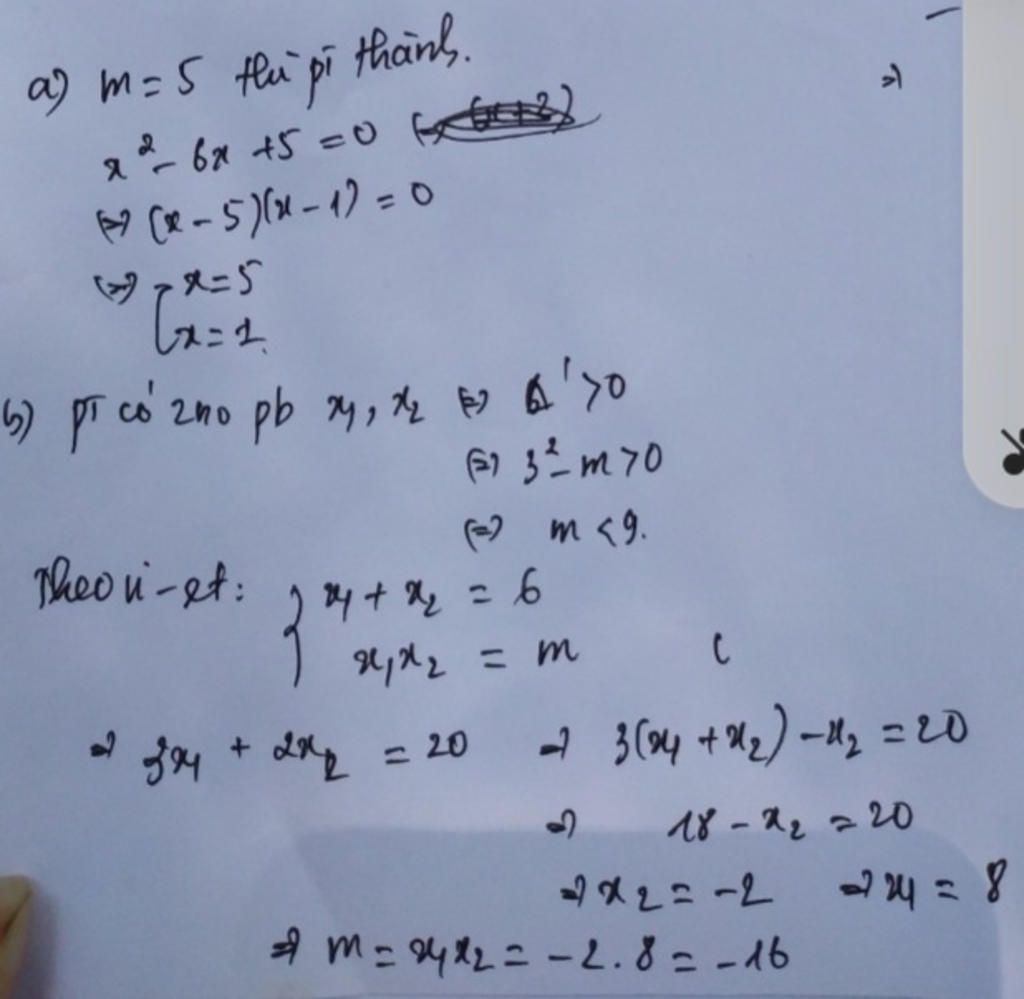 a) m = 5 thì pt thành.
x² - 6x + 5 = 0
(=) (x - 5)(x - 1) = 0
(=) [ x = 5
x = 1.
b) pt có 2no pb x₁, x₂ (=) Δ' > 0
(=) 3² - m > 0
(=) m < 9.
Theo vi-et: { x₁ + x₂ = 6
x₁x₂ = m
=> 3x₁ + 2x₂ = 20 => 3(x₁ + x₂) - x₂ = 20
=> 18 - x₂ = 20
=> x₂ = -2 => x₁ = 8
=> m = x₁x₂ = -2 . 8 = -16